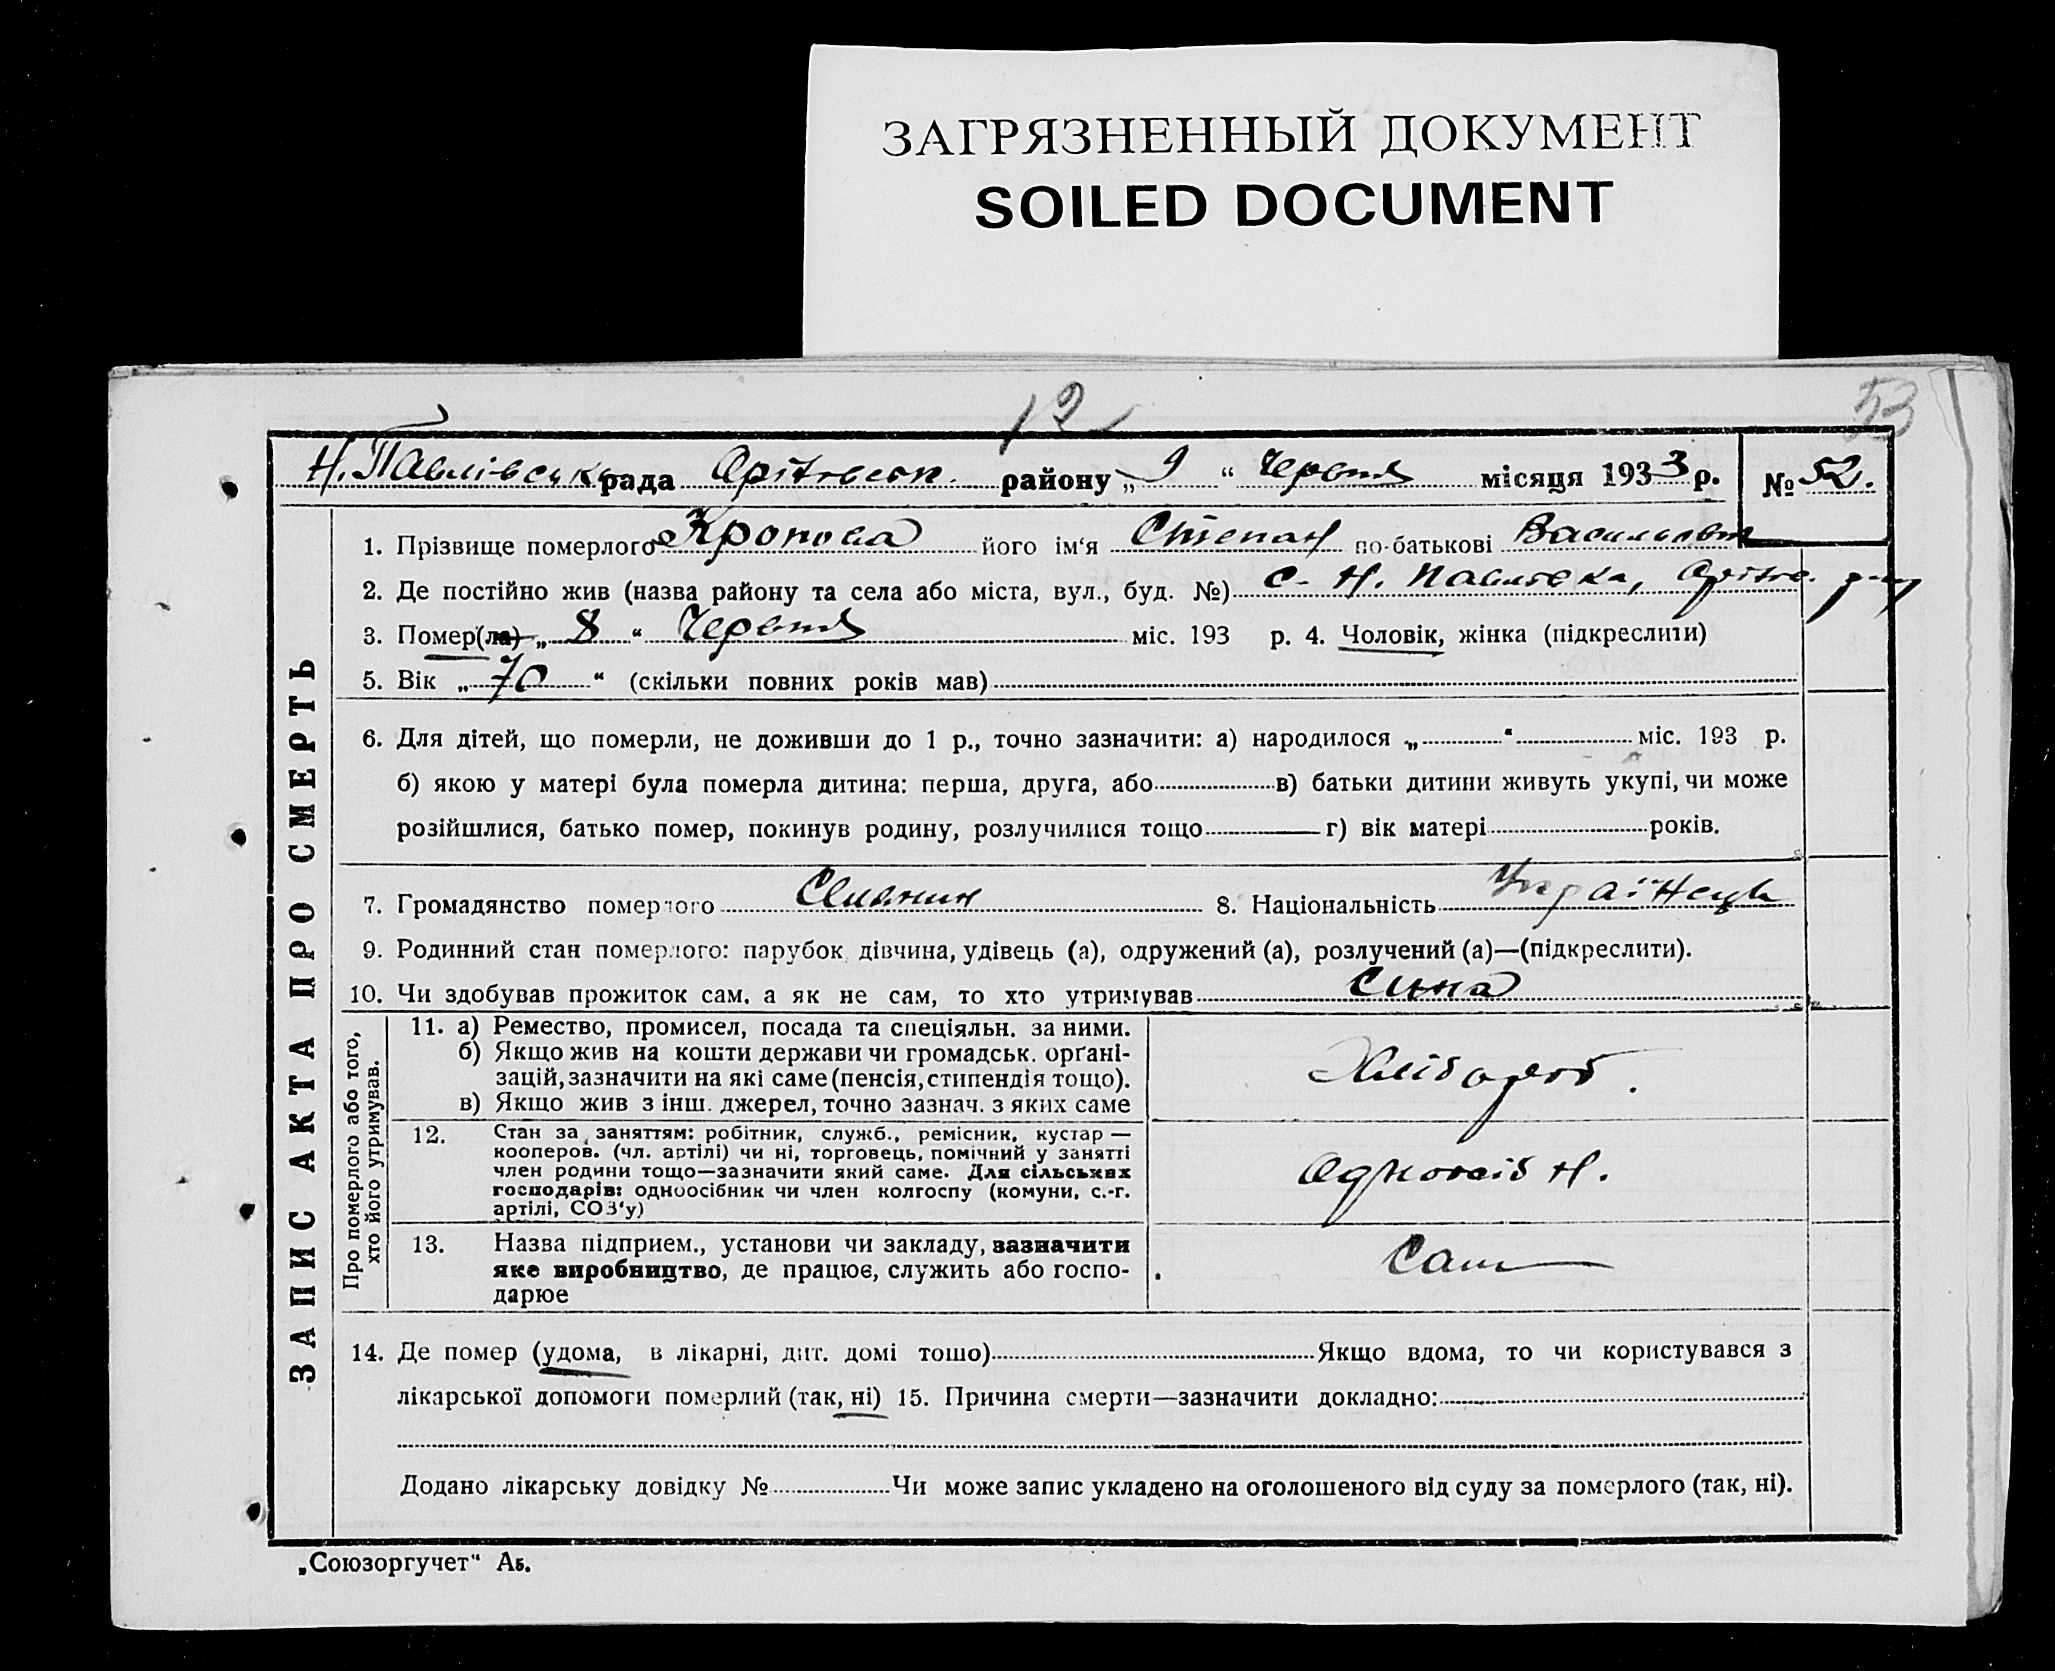 ЗАГРЯЗНЕННЫЙ ДОКУМЕНТ
SOILED DOCUMENT
12
53
Н. Павлівська рада Оріхівськ. району „ 9 “ Червня місяця 1933 р.
№ 52.
ЗАПИС АКТА ПРО СМЕРТЬ
1. Прізвище померлого Кропова його ім‘я Степан по-батькові Васильов
2. Де постійно жив (назва району та села або міста, вул., буд. №) с. Н. Павлівка, Оріхів. р-ну
3. Помер(ла) „ 8 “ Червня міс. 193 р. 4. Чоловік, жінка (підкреслити)
5. Вік „ 70 “ (скільки повних років мав)
6. Для дітей, що померли, не доживши до 1 р., точно зазначити: а) народилося „ “ міс. 193 р.
б) якою у матері була померла дитина: перша, друга, або в) батьки дитини живуть укупі, чи може
розійшлися, батько помер, покинув родину, розлучилися тощо г) вік матері років.
7. Громадянство померлого Селянин 8. Національність Українець
9. Родинний стан померлого: парубок, дівчина, удівець (а), одружений (а), розлучений (а)—(підкреслити).
10. Чи здобував прожиток сам, а як не сам, то хто утримував Сина
Про померлого або того, хто його утримував.
11. а) Ремество, промисел, посада та спеціяльн. за ними.
б) Якщо жив на кошти держави чи громадськ. орґані-
зацій, зазначити на які саме (пенсія, стипендія тощо).
в) Якщо жив з інш. джерел, точно зазнач. з яких саме
Хлібороб.
12. Стан за заняттям: робітник, служб., ремісник, кустар —
кооперов. (чл. артілі) чи ні, торговець, помічний у занятті
член родини тощо—зазначити який саме. Для сільських
господарів: одноосібник чи член колгоспу (комуни, с.-г.
артілі, СОЗ‘у)
Одноосібн.
13. Назва підприєм., установи чи закладу, зазначити
яке виробництво, де працює, служить або госпо-
дарює
Сам
14. Де помер (удома, в лікарні, дит. домі тощо) Якщо вдома, то чи користувався з
лікарської допомоги померлий (так, ні) 15. Причина смерти—зазначити докладно:
Додано лікарську довідку № Чи може запис укладено на оголошеного від суду за померлого (так, ні).
„Союзоргучет“ Аб.